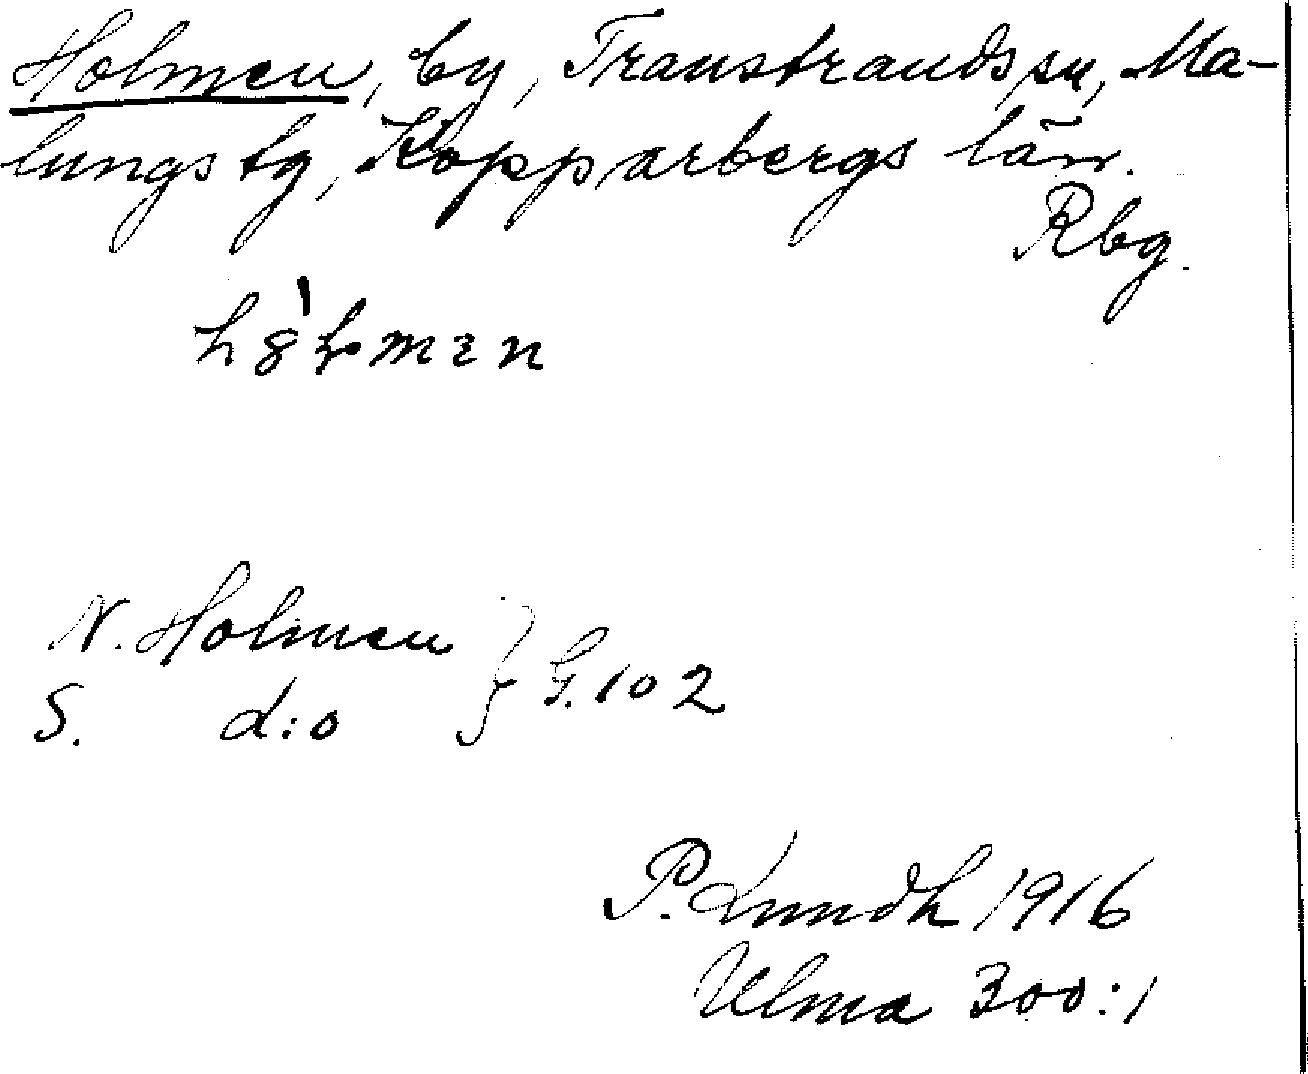 Holmen, by, Transtrands sn, Ma-
lungs tg, Kopparbergs län.
Rbg.
N. Holmen
S. d:o } G. 102
P. Lundh 1916
Ulma 300:1